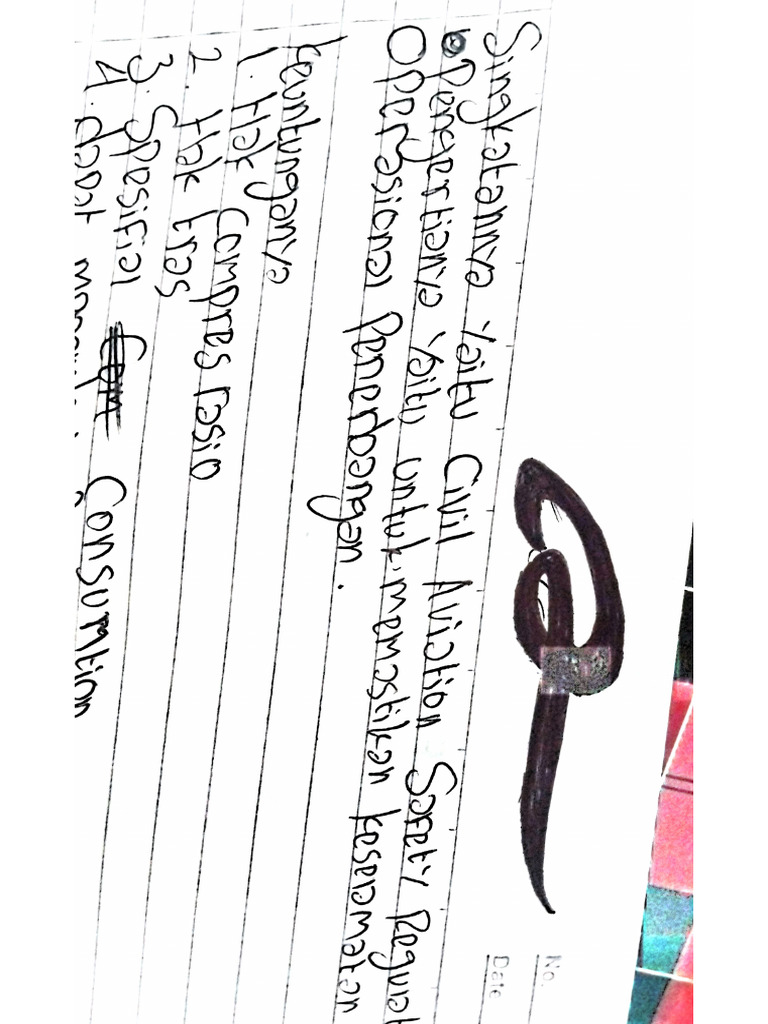 No.
Date
Singkatannya yaitu Civil Aviation Safety Regulat
Pengertianya yaitu untuk memastikan keselamatan
Operasional Penerbangan.
keuntunganya
1. Hak Compres rasio
2. Hak tras
3. Spesifial Consumtion
4. dapat